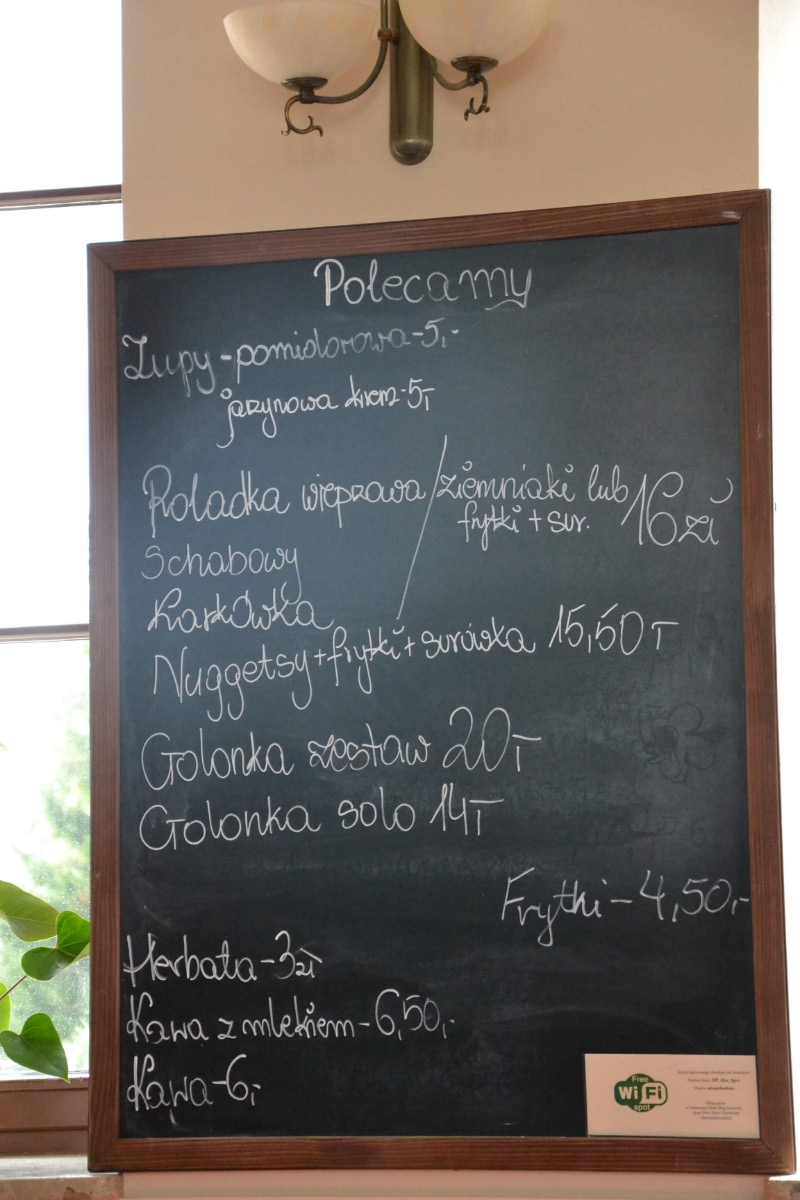 Polecamy
Zupy - pomidorowa - 5,-
jarzynowa krem - 5,-
Roladka wieprzowa / ziemniaki lub 16 zł
frytki + sur.
Schabowy
Karkówka
Nuggetsy + frytki + surówka 15,50,-
Golonka zestaw 20,-
Golonka solo 14,-
Frytki - 4,50,-
Herbata - 3 zł
Kawa z mlekiem - 6,50,-
Kawa - 6,-
Free
Wi Fi
spot